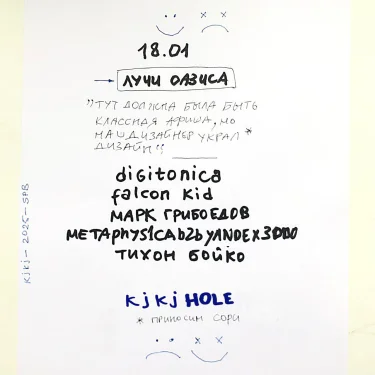 18.01
ЛУЧИ ОАЗИСА
"ТУТ ДОЛЖНА БЫЛА БЫТЬ
КЛАССНАЯ АФИША, НО
НАШ ДИЗАЙНЕР УКРАЛ *
ДИЗАЙН"
digitonica
falcon kid
МАРК ГРИБОЕДОВ
METAPHYS1CAb2byANDEX3000
ТИХОН БОЙКО
kjkj HOLE
* ПРИНОСИМ СОРИ
kjkj - 2025 - SPB